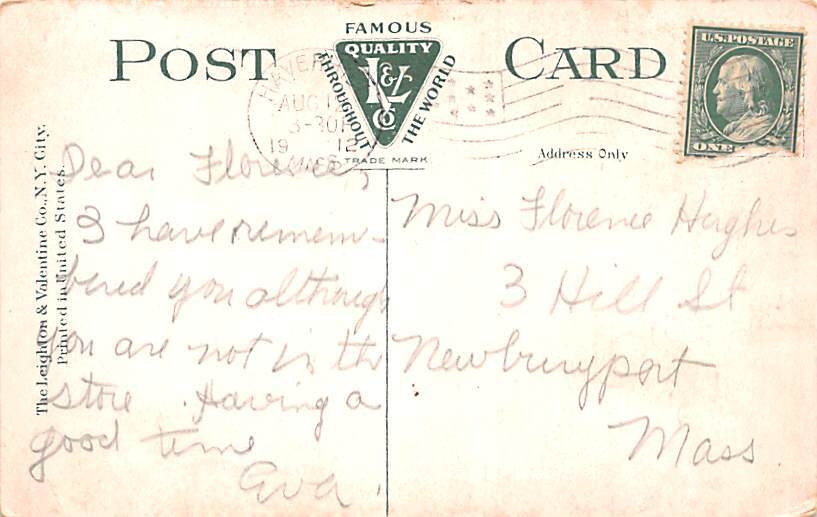 POST CARD
FAMOUS
QUALITY
L & V
Co
THROUGHOUT THE WORLD
TRADE MARK
HAVER
AUG 12
3-30P
19 12
MASS
U.S. POSTAGE
ONE
Address Only
The Leighton & Valentine Co., N.Y. City.
Printed in United States.
Dear Florence,
I have remem-
bered you although
you are not in the
store. Having a
good time
Eva.
Miss Florence Hughes
3 Hill St.
Newburyport
Mass.